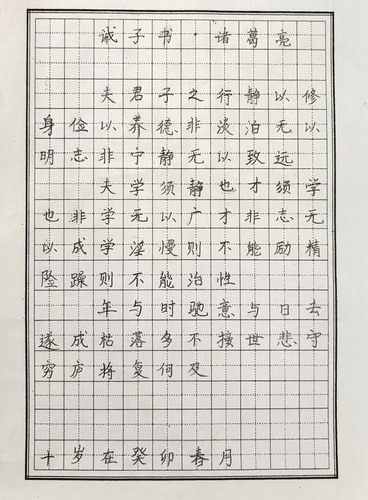 诫子书·诸葛亮
夫君子之行静以修
身俭以养德非淡泊无以
明志非宁静无以致远
夫学须静也才须学
也非学无以广才非志无
以成学淫慢则不能励精
险躁则不能治性
年与时驰意与日去
遂成枯落多不接世悲守
穷庐将复何及
十岁在癸卯春月